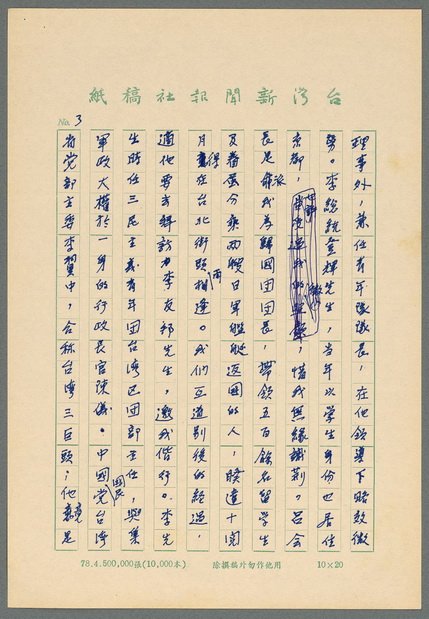 紙稿社報聞新湾台
No. 3
理事外,兼任青年隊隊長,在他領導下略效微
勞。李總統登輝先生,當年以學生身份也居住
京都,惜我無緣識荊。呂會
長是派我為歸國團團長,帶領五百餘名留學生
及番蛋分乘兩艘日軍艦艇返國的人,睽違十閱
月得在台北街頭相逢。我們互道別後的經過,
適他要去拜訪力李友邦先生,邀我偕行。李先
生時任三民主義青年團台灣區團部主任,與集
軍政大權於一身的行政長官陳儀。中國國民党台湾
省党部主委李翼中,合称台湾三巨頭;他竟是
78.4.500,000張(10,000本)
除撰稿外勿作他用
10×20